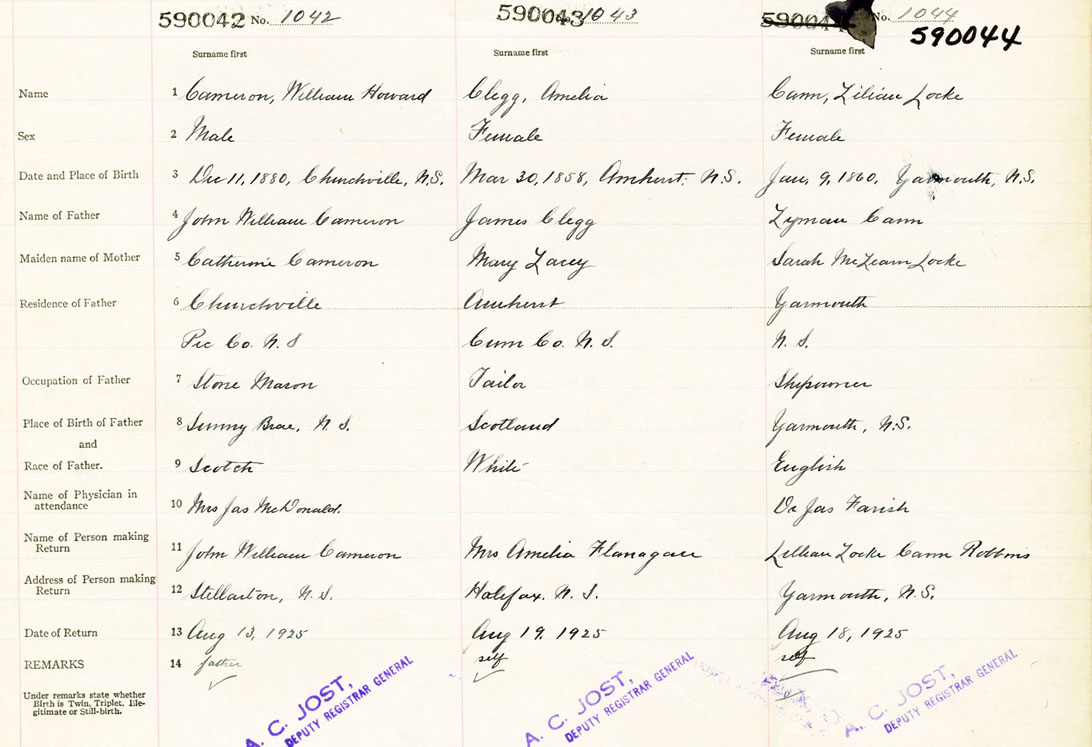 590042 No. 1042 590043 1043 No. 1044
590044
Surname first Surname first Surname first
Name 1 Cameron, William Howard Clegg, Amelia Cann, Lilian Locke
Sex 2 Male Female Female
Date and Place of Birth 3 Dec 11, 1880, Churchville, N.S. Mar 30, 1858, Amherst, N.S. Jan. 9, 1860, Yarmouth, N.S.
Name of Father 4 John William Cameron James Clegg Lyman Cann
Maiden name of Mother 5 Catherine Cameron Mary Lacey Sarah McLearn Locke
Residence of Father 6 Churchville Amherst Yarmouth
Pic Co. N. S Cum Co. N. S. N. S.
Occupation of Father 7 Stone Mason Tailor Shipowner
Place of Birth of Father 8 Sunny Brae, N. S. Scotland Yarmouth, N.S.
and
Race of Father. 9 Scotch White English
Name of Physician in
attendance 10 Mrs Jas McDonald. Dr Jas Farish
Name of Person making
Return 11 John William Cameron Mrs Amelia Flanagan Lillian Locke Cann Robbins
Address of Person making
Return 12 Stellarton, N. S. Halifax. N. S. Yarmouth, N.S.
Date of Return 13 Aug 13, 1925 Aug 19. 1925 Aug 18, 1925
REMARKS 14 father self self
Under remarks state whether
Birth is Twin, Triplet, Ille-
gitimate or Still-birth.
A. C. JOST, A. C. JOST, A. C. JOST,
DEPUTY REGISTRAR GENERAL DEPUTY REGISTRAR GENERAL DEPUTY REGISTRAR GENERAL